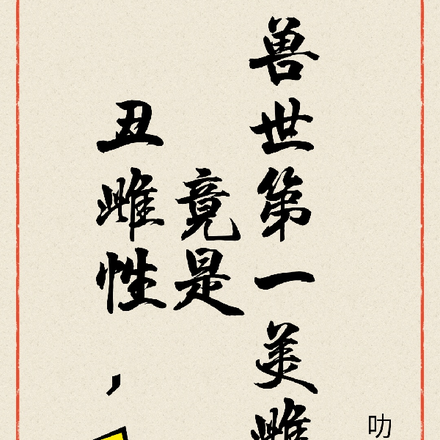 丑雌性，
竟是
兽世第一美雌
叻